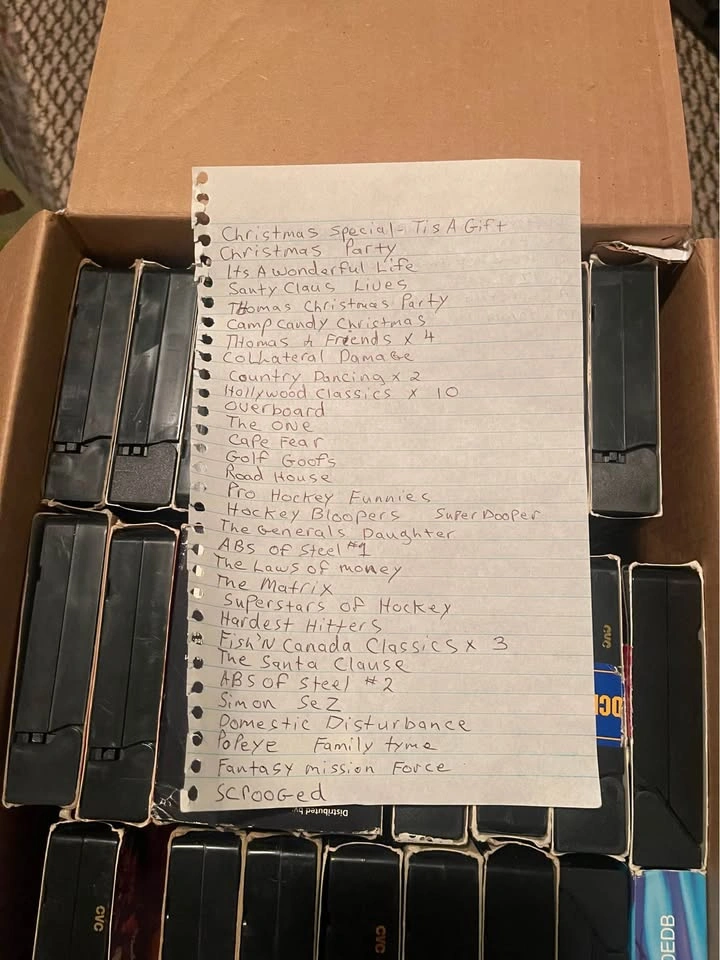 Christmas Special - Tis A Gift
Christmas Party
Its A Wonderful Life
Santy Claus Lives
Thomas Christmas Party
Camp Candy Christmas
Thomas & Friends x 4
Collateral Damage
Country Dancing x 2
Hollywood Classics x 10
Overboard
The ONE
Cape Fear
Golf Goofs
Road House
Pro Hockey Funnies
Hockey Bloopers Super Dooper
The Generals Daughter
ABs of Steel #1
The Laws of money
The Matrix
Superstars of Hockey
Hardest Hitters
Fish'N Canada Classics x 3
The Santa Clause
ABS of Steel #2
Simon Sez
Domestic Disturbance
Popeye Family tyme
Fantasy mission Force
Scrooged
Distributed by:
CVC
CVC
CVC
DEDB